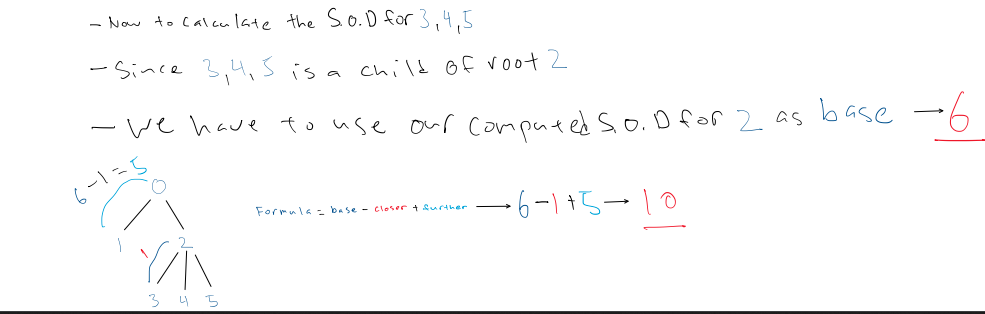 - Now to calculate the S.O.D for 3,4,5
- Since 3,4,5 is a child of root 2
- We have to use our computed S.O.D for 2 as base → 6
6-1=5
0
Formula = base - closer + further → 6-1+5 → 10
1 2
3 4 5